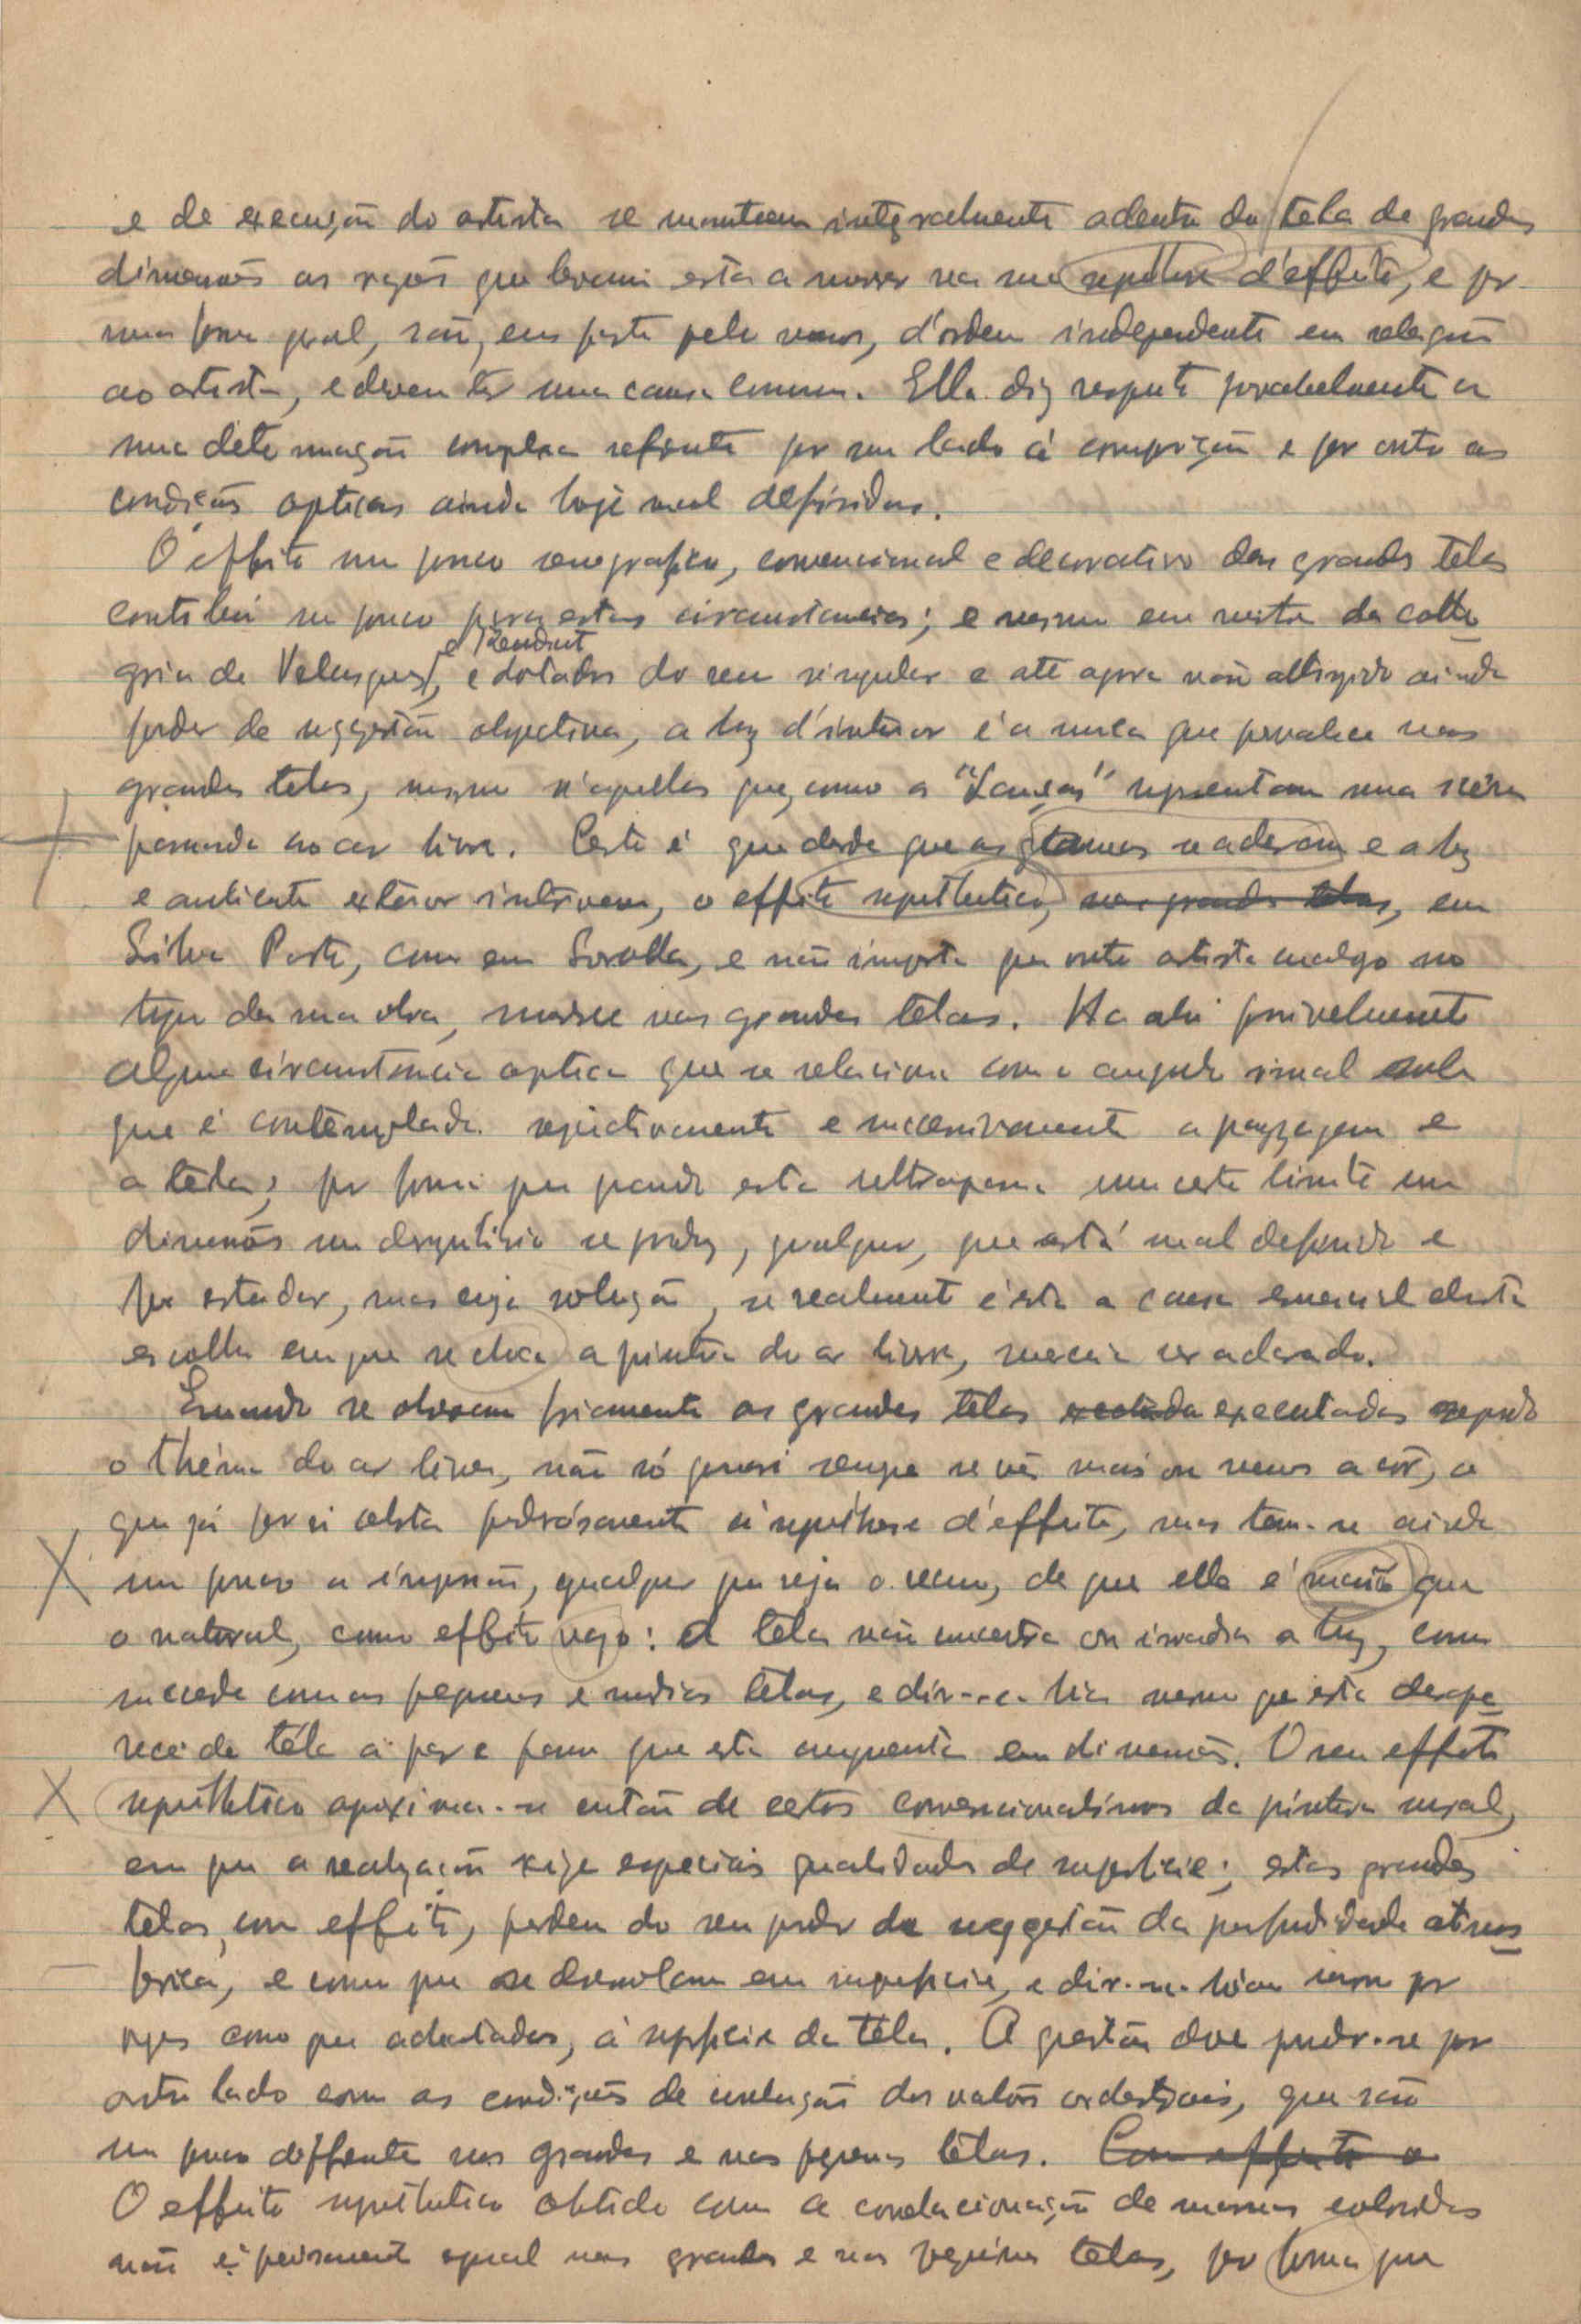 e de execução do artista se manteem integralmente adentro da tela de grandes
dimensões as razões que levam esta a morrer na sua synthese d'effeito, e por
uma forma geral, são, em parte pelo menos, d'ordem independente em relação
ao artista, e devem ter uma causa commum. Ella diz respeito provavelmente a
uma determinação complexa referente por um lado á composição e por outro as
condições opticas ainda hoje mal definidas.
O effeito um pouco scenografico, convencional e decorativo das grandes telas
contribui um pouco para estas circumstancias; e mesmo em mestres da cathe
goria de Velasquez, e Rembrandt e dotados do seu singular e até agora não attingido ainda
poder de suggestão objectiva, a luz d'interior é a unica que prevalece nas
grandes telas, mesmo n'aquellas que, como as "Lanças" representam uma scena
passada ao ar livre. Certo é que desde que as gammas se aderam e a luz
e ambiente exterior intervem, o effeito synthetico, nas grandes telas, em
Silva Porto, como em Sorolla, e não importa que outro artista analogo no
typo da sua obra, morre nas grandes telas. Ha ahi possivelmente
alguma circumstancia optica que se relaciona com o angulo visual sob
que é contemplada respectivamente e successivamente a payzagem e
a tela; por forma que quando esta ultrapassa um certo limite em
dimensões um desequilibrio se produz, qualquer, que está mal definido e
por estudar, mas cuja solução, se realmente é esta a causa essencial desta
escolha em que se choca a pintura do ar livre, merecia ser aclarada.
Quando se observam friamente as grandes telas executadas segundo
o théma do ar livre, não só quasi sempre se vê mais ou menos a côr, o
que já por si obsta poderósamente á synthese d'effeito, mas tem-se ainda
um pouco a impressão, qualquer que seja o recuo, de que ella é maior que
o natural, como effeito vago: A tela não encerra ou irradia a luz, como
succede com as pequenas e médias telas, e dir-se-hia mesmo que esta desapa
rece da téla á par e forma que esta augmenta em dimensões. O seu effeito
synthetico aproxima-se então de certos convencionalismos da pintura mural,
em que a realização exige especiais qualidades de superficie; estas grandes
telas, com effeito, perdem do seu poder de suggestão da profundidade atmos
ferica, e como que se desenrolam em superficie, e dir-se-hiam mesmo por
vezes como que adestadas, á superficie da téla. A questão deve prender-se por
outro lado com as condições de evolução dos valores, que são
um pouco differentes nas grandes e nas pequenas télas. Com effeito o
O effeito synthetico obtido com a correlacionação de massas coloridas
não é precisamente egual nas grandes e nas pequenas telas, por forma que